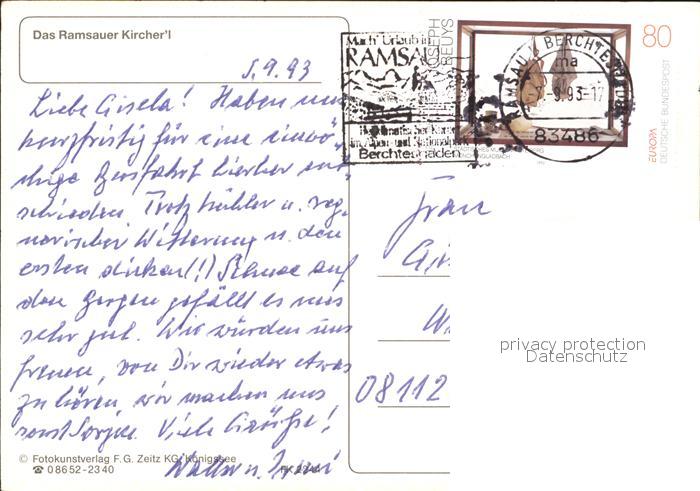 Das Ramsauer Kircher'l
5.9.93
Liebe Gisela! Haben uns
kurzfristig für eine einwö-
chige Busfahrt hierher ent-
schieden. Trotz kühler u. reg-
nerischer Witterung u. den
ersten dicken(!!) Schnee auf
den Bergen gefällt es uns
sehr gut. Wir würden uns
freuen, von Dir wieder etwas
zu hören, wir machen uns
sonst Sorgen. Viele Grüße!
Walter u.
© Fotokunstverlag F. G. Zeitz KG, Königssee
☎ 08652-2340
Mach' Urlaub in
RAMSAU
Heilklimatischer Kurort
im Alpen- und Nationalpark
Berchtesgaden
JOSEPH
BEUYS
RAMSAU b BERCHTESGADEN
ma
-9.93-17
83486
80
EUROPA
DEUTSCHE BUNDESPOST
Frau
08112
privacy protection
Datenschutz